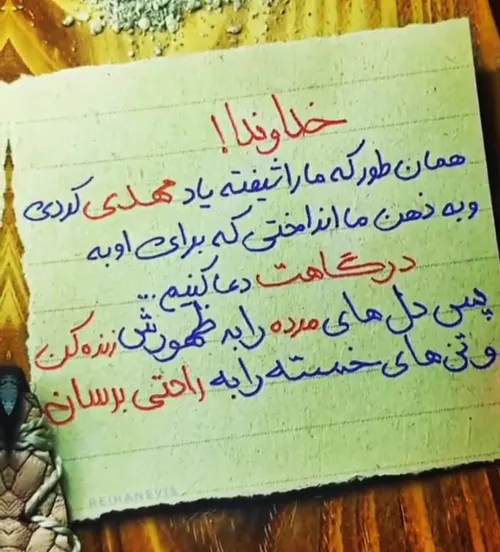 خداوندا!
همان طور که ما را شیفته یاد مهدی کردی
و به ذهن ما انداختی که برای او به
درگاهت دعا کنیم...
پس دل های مرده را به ظهورش زنده کن
و تن های خسته را به راحتی برسان
REIHANEVIS